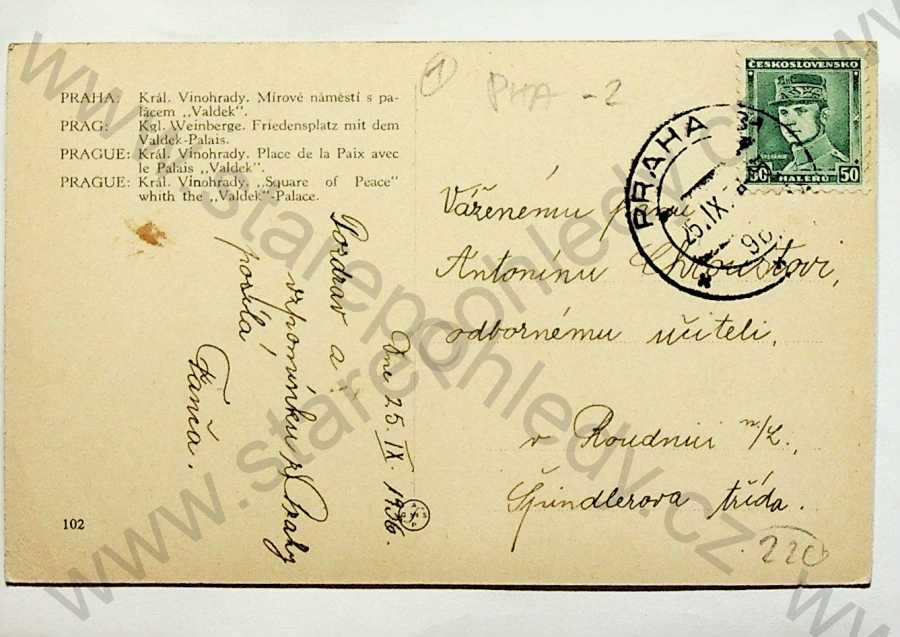 PRAHA: Král. Vinohrady. Mírové náměstí s pa-
lácem „Valdek".
PRAG: Kgl. Weinberge. Friedensplatz mit dem
Valdek-Palais.
PRAGUE: Král. Vinohrady. Place de la Paix avec
le Palais „Valdek".
PRAGUE: Král. Vinohrady. „Square of Peace"
whith the „Valdek"-Palace.
1
PHA -2
ČESKOSLOVENSKO
50 HALÉŘŮ 50
PRAHA
25.IX
Dne 25. IX. 1936.
Pozdrav a
vzpomínku z Prahy
posílá
Fanča.
Váženému panu
Antonínu Chloustovi,
odbornému učiteli,
v Roudnici n/L.
Špindlerova třída.
102
220
www.starepohledy.cz
www.starepohledy.cz
www.starepohledy.cz